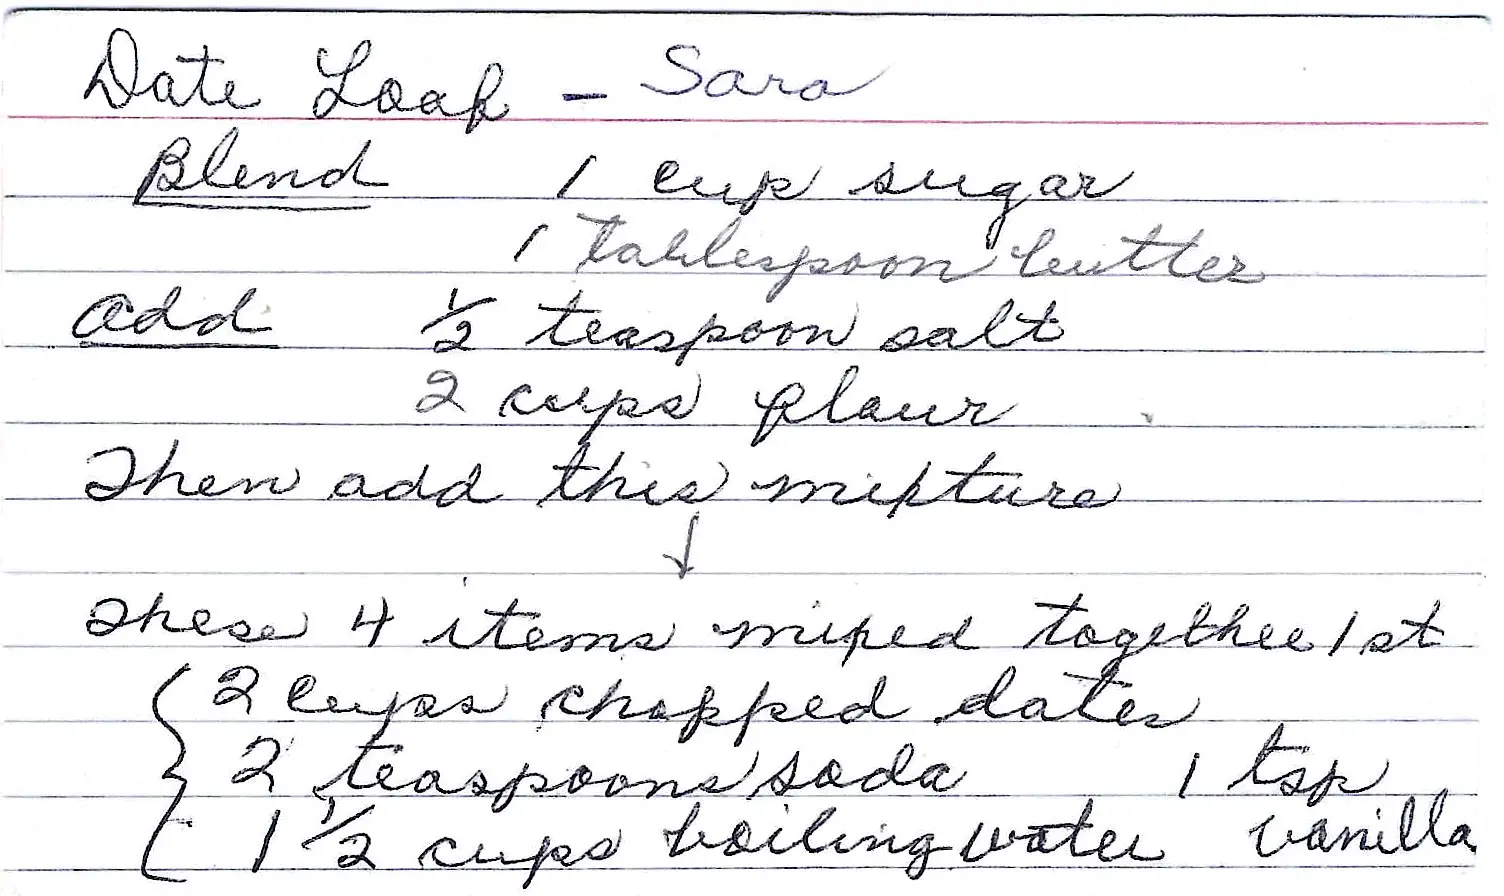 Date Loaf - Sara
Blend 1 cup sugar
1 tablespoon butter
add 1/2 teaspoon salt
2 cups flour
Then add this mixture
↓
These 4 items mixed together 1st
{ 2 cups chopped dates
2 teaspoons soda 1 tsp
1 1/2 cups boiling water vanilla